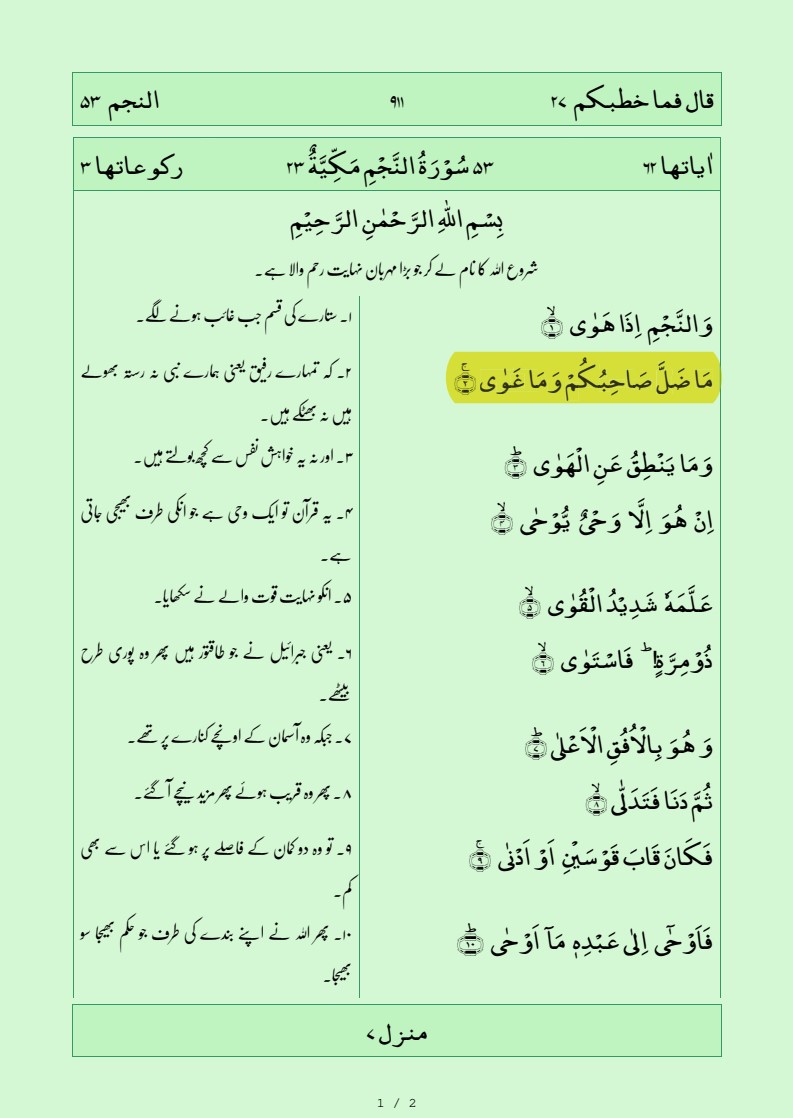 قال فما خطبکم ۲۷ ۹۱۱ النجم ۵۳
اٰیاتها ۶۲ ۵۳ سُوْرَةُ النَّجْمِ مَكِّیَّةٌ ۲۳ رکوعاتها ۳
بِسْمِ اللّٰهِ الرَّحْمٰنِ الرَّحِیْمِ
شروع اللہ کا نام لے کر جو بڑا مہربان نہایت رحم والا ہے۔
وَ النَّجْمِ اِذَا هَوٰی ۙ﴿۱﴾
۱۔ ستارے کی قسم جب غائب ہونے لگے۔
مَا ضَلَّ صَاحِبُكُمْ وَ مَا غَوٰی ۚ﴿۲﴾
۲۔ کہ تمہارے رفیق یعنی ہمارے نبی نہ رستہ بھولے
ہیں نہ بھٹکے ہیں۔
وَ مَا یَنْطِقُ عَنِ الْهَوٰی ؕ﴿۳﴾
۳۔ اور نہ یہ خواہش نفس سے کچھ بولتے ہیں۔
اِنْ هُوَ اِلَّا وَحْیٌ یُّوْحٰی ۙ﴿۴﴾
۴۔ یہ قرآن تو ایک وحی ہے جو انکی طرف بھیجی جاتی
ہے۔
عَلَّمَهٗ شَدِیْدُ الْقُوٰی ۙ﴿۵﴾
۵۔ انکو نہایت قوت والے نے سکھایا۔
ذُوْ مِرَّةٍ ؕ فَاسْتَوٰی ۙ﴿۶﴾
۶۔ یعنی جبرائیل نے جو طاقتور ہیں پھر وہ پوری طرح
بیٹھے۔
وَ هُوَ بِالْاُفُقِ الْاَعْلٰی ؕ﴿۷﴾
۷۔ جبکہ وہ آسمان کے اونچے کنارے پر تھے۔
ثُمَّ دَنَا فَتَدَلّٰی ۙ﴿۸﴾
۸۔ پھر وہ قریب ہوئے پھر مزید نیچے آ گئے۔
فَكَانَ قَابَ قَوْسَیْنِ اَوْ اَدْنٰی ۚ﴿۹﴾
۹۔ تو وہ دو کمان کے فاصلے پر ہو گئے یا اس سے بھی
کم۔
فَاَوْحٰۤی اِلٰی عَبْدِهٖ مَاۤ اَوْحٰی ؕ﴿۱۰﴾
۱۰۔ پھر اللہ نے اپنے بندے کی طرف جو حکم بھیجا سو
بھیجا۔
منزل ۷
1 / 2